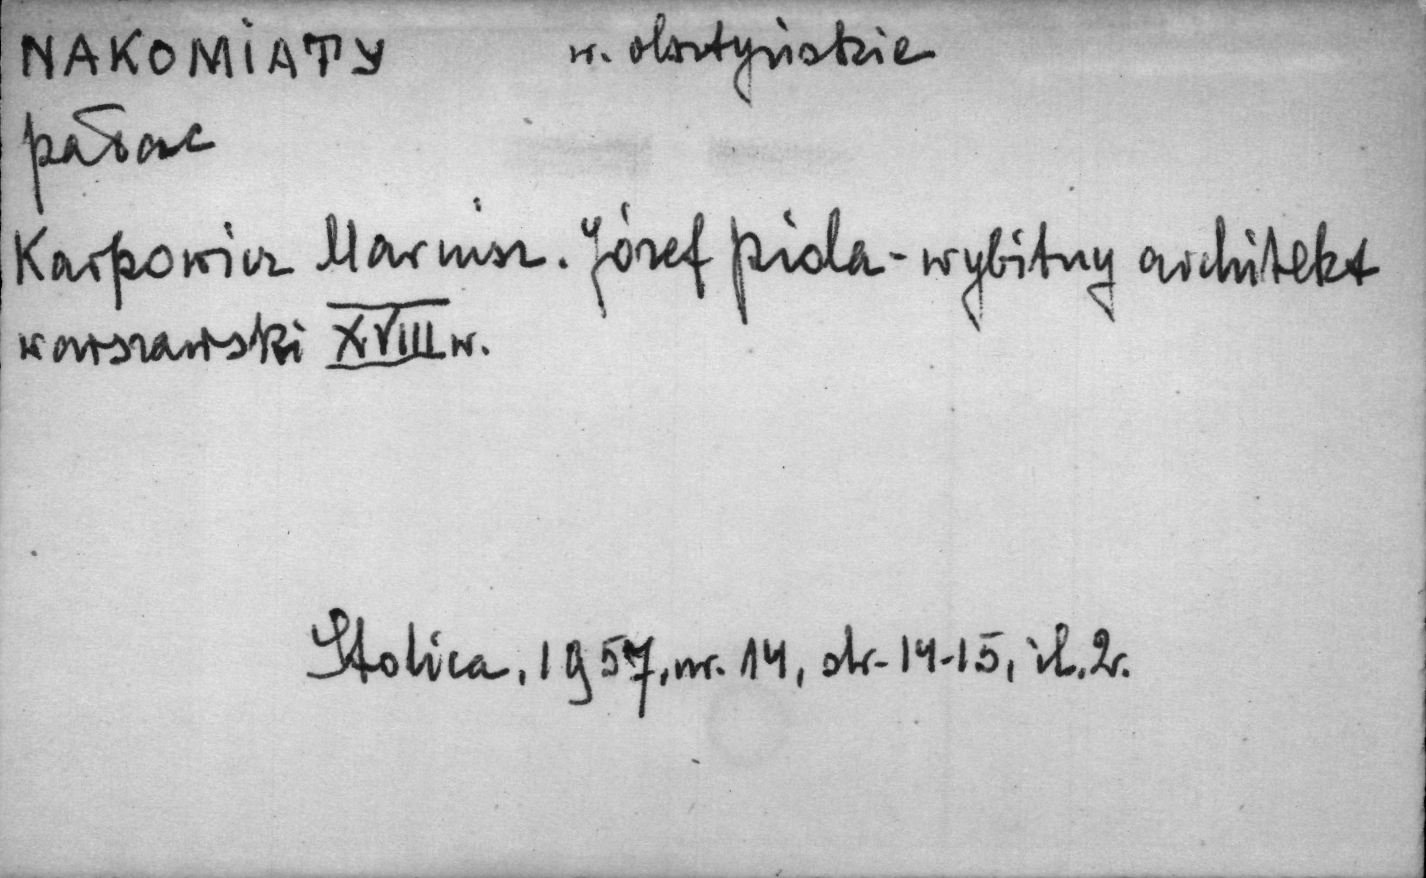 NAKOMIATY w. olsztyńskie
pałac
Karpowicz Mariusz. Józef Piola - wybitny architekt
warszawski XVIII w.
Stolica, 1957, nr. 14, str. 14-15, il. 2.